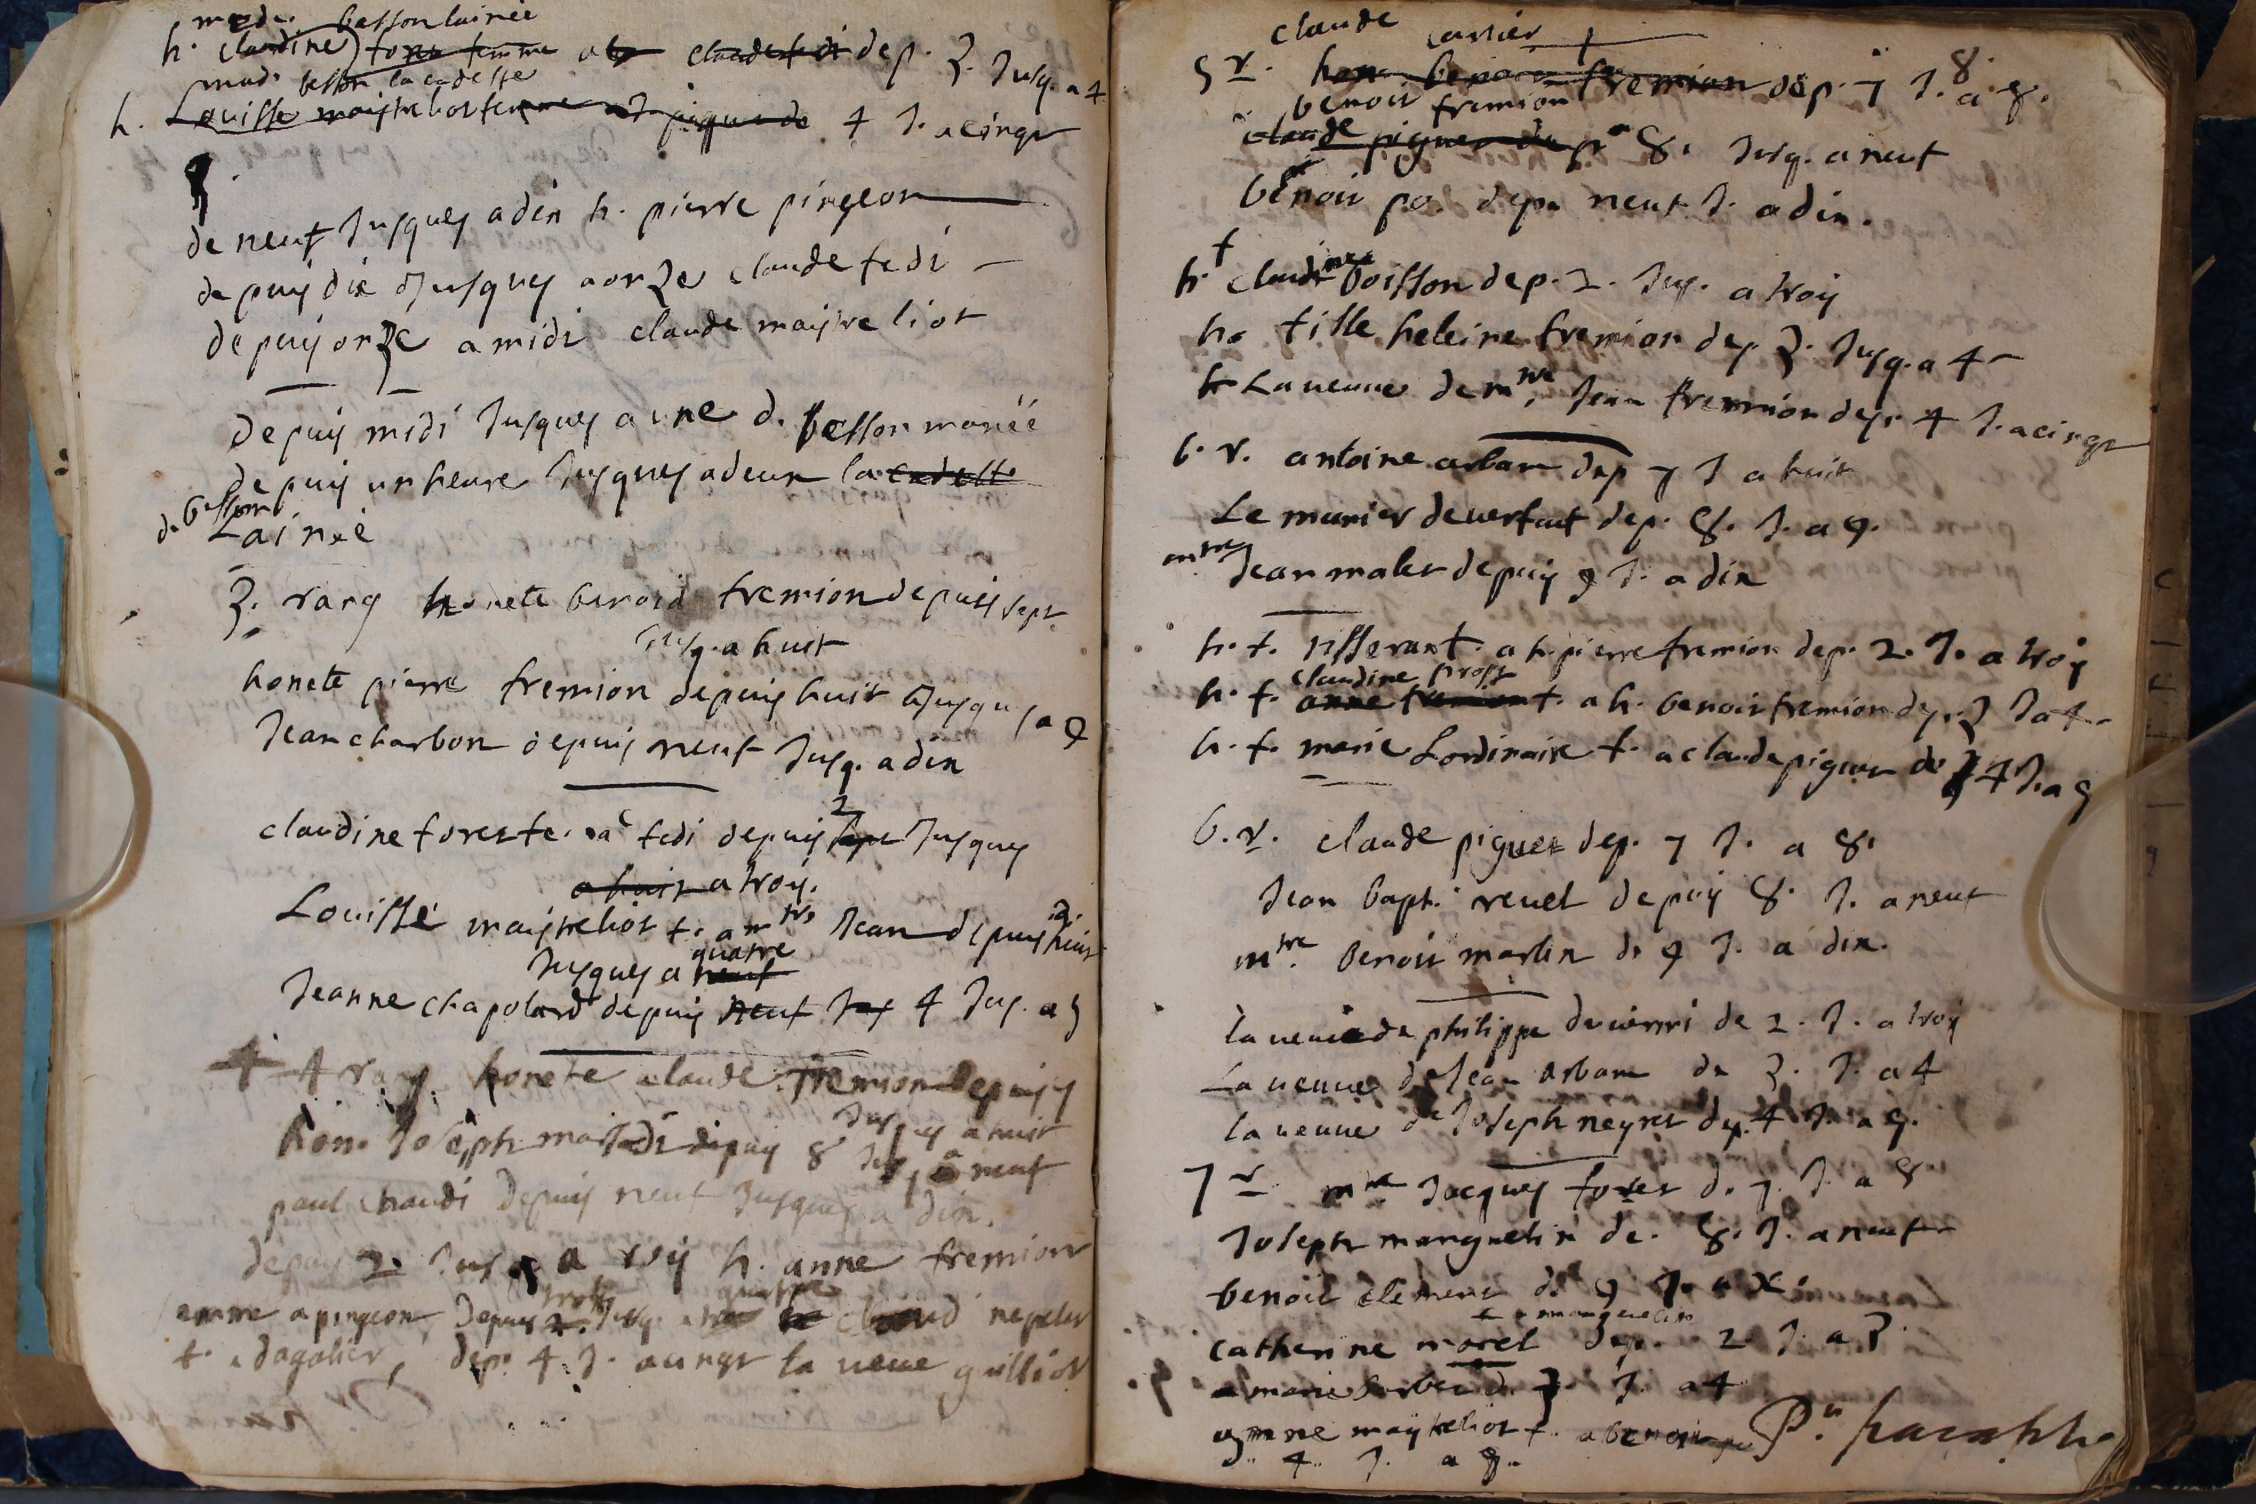 made. besson lainée
h. claudine fores femme a claude fedi dep. 3. Jusq. a 4
mad. besson la cadette
h. Louisse maistreliot femme a piguet de 4 J. a cinqt
de neuf Jusques a dix h. pierre pingeon
depuis dix Jusques a onze claude fedi
depuis onze a midi claude maistreliot
depuis midi Jusques a une d. besson mariéé
depuis un heure Jusques a deux la cadette
d. besson
Lainée
3. rang honete benoid fremion depuis sept
Jusq. a huit
honete pierre fremion depuis huit Jusqu a 9
Jean charbon depuis neuf Jusq. a dix
claudine foreste. a fedi depuis 2 sept Jusques
a huit a trois.
Louisse maistreliot f. a mtre Jean depuis 3. huit
quatre
Jusques a neuf
Jeanne chapolard depuis neuf Jus 4 Jus. a 5
4 4 rang. honete claude fremion depuis 7
Jusques a huit
hon. Joseph depuis 8 Jusq. a neuf
paul chaudi depuis neuf Jusques a dix.
depuis 2. Jusq. a trois h. anne fremion
trois quatre
femme a pingeon, Depuis 2. Jusq. a
f. a dagalier, dep. 4. J. a cinqt la veuve guilliot
claude carrier
5 r. hon. fremion dep. 7 J. a 8.
benoit fremion
claude piguet dep. 8. Jusq. a neuf
benoit po. depu neuf J. a dix.
h. f claudine boisson dep. 2. Jus. a trois
h. fille heleine fremion dep. 3. Jusq. a 4
h La veuve de mtre. Jean fremion dep. 4 J. a cinqt
6. r. antoine arban dep 7 J a huit
Le munier de dep. 8. J. a 9.
mtre Jean malet depuis 9 J. a dix
h. f. f. a h. pierre fremion dep. 2. J. a trois
claudine prost
h. f. anne fremion f. a h. benoit fremion dep. 3 J a 4
h. f. marie Lordinaire f. a claude piguet de 4 J. a 5
6. r. claude piguet dep. 7 J. a 8.
Jean bapti revel depuis 8. J. a neuf
mtre. Benoit marlin d. 9 J. a dix.
la veuve de philippe de 2. J. a trois
La veuve de Jean arban de 3. J. a 4
la veuve de Joseph neyret dep. 4 J. a 5.
7 r mtre Jacques foret d. 7. J. a 8
Joseph manguelin de. 8. J. a neuf
benoit clement d. 9 J. a X
f. a manguelin
catherine morel dep. 2 J. a 3.
marie d. 3. J. a 4
anne maistreliot f. a benoit
d. 4. J. a 5.